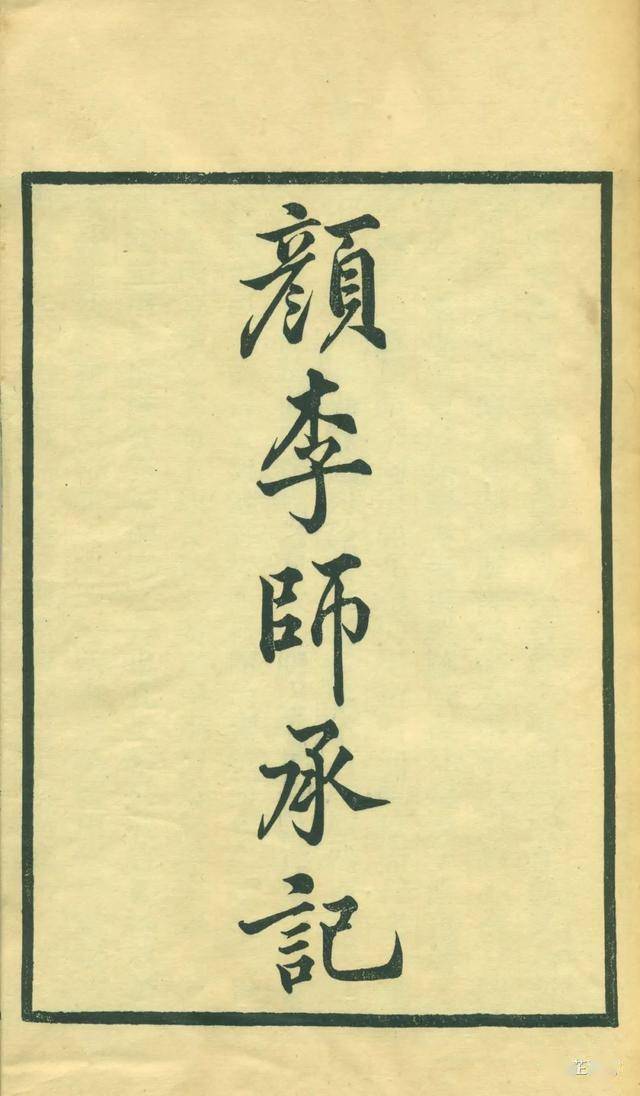 顔李師承記